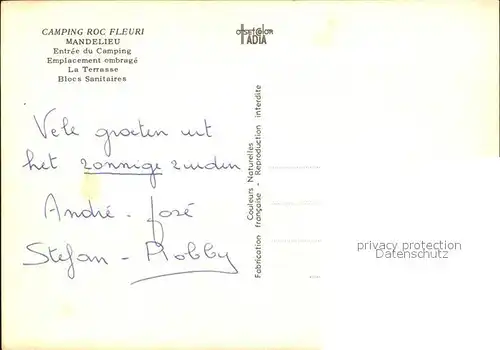 CAMPING ROC FLEURI
MANDELIEU
Entrée du Camping
Emplacement ombragé
La Terrasse
Blocs Sanitaires
TADIA
Couleurs Naturelles
Fabrication française - Reproduction interdite
Vele groeten uit
het zonnige zuiden
André - José
Stefan - Robby
privacy protection
Datenschutz